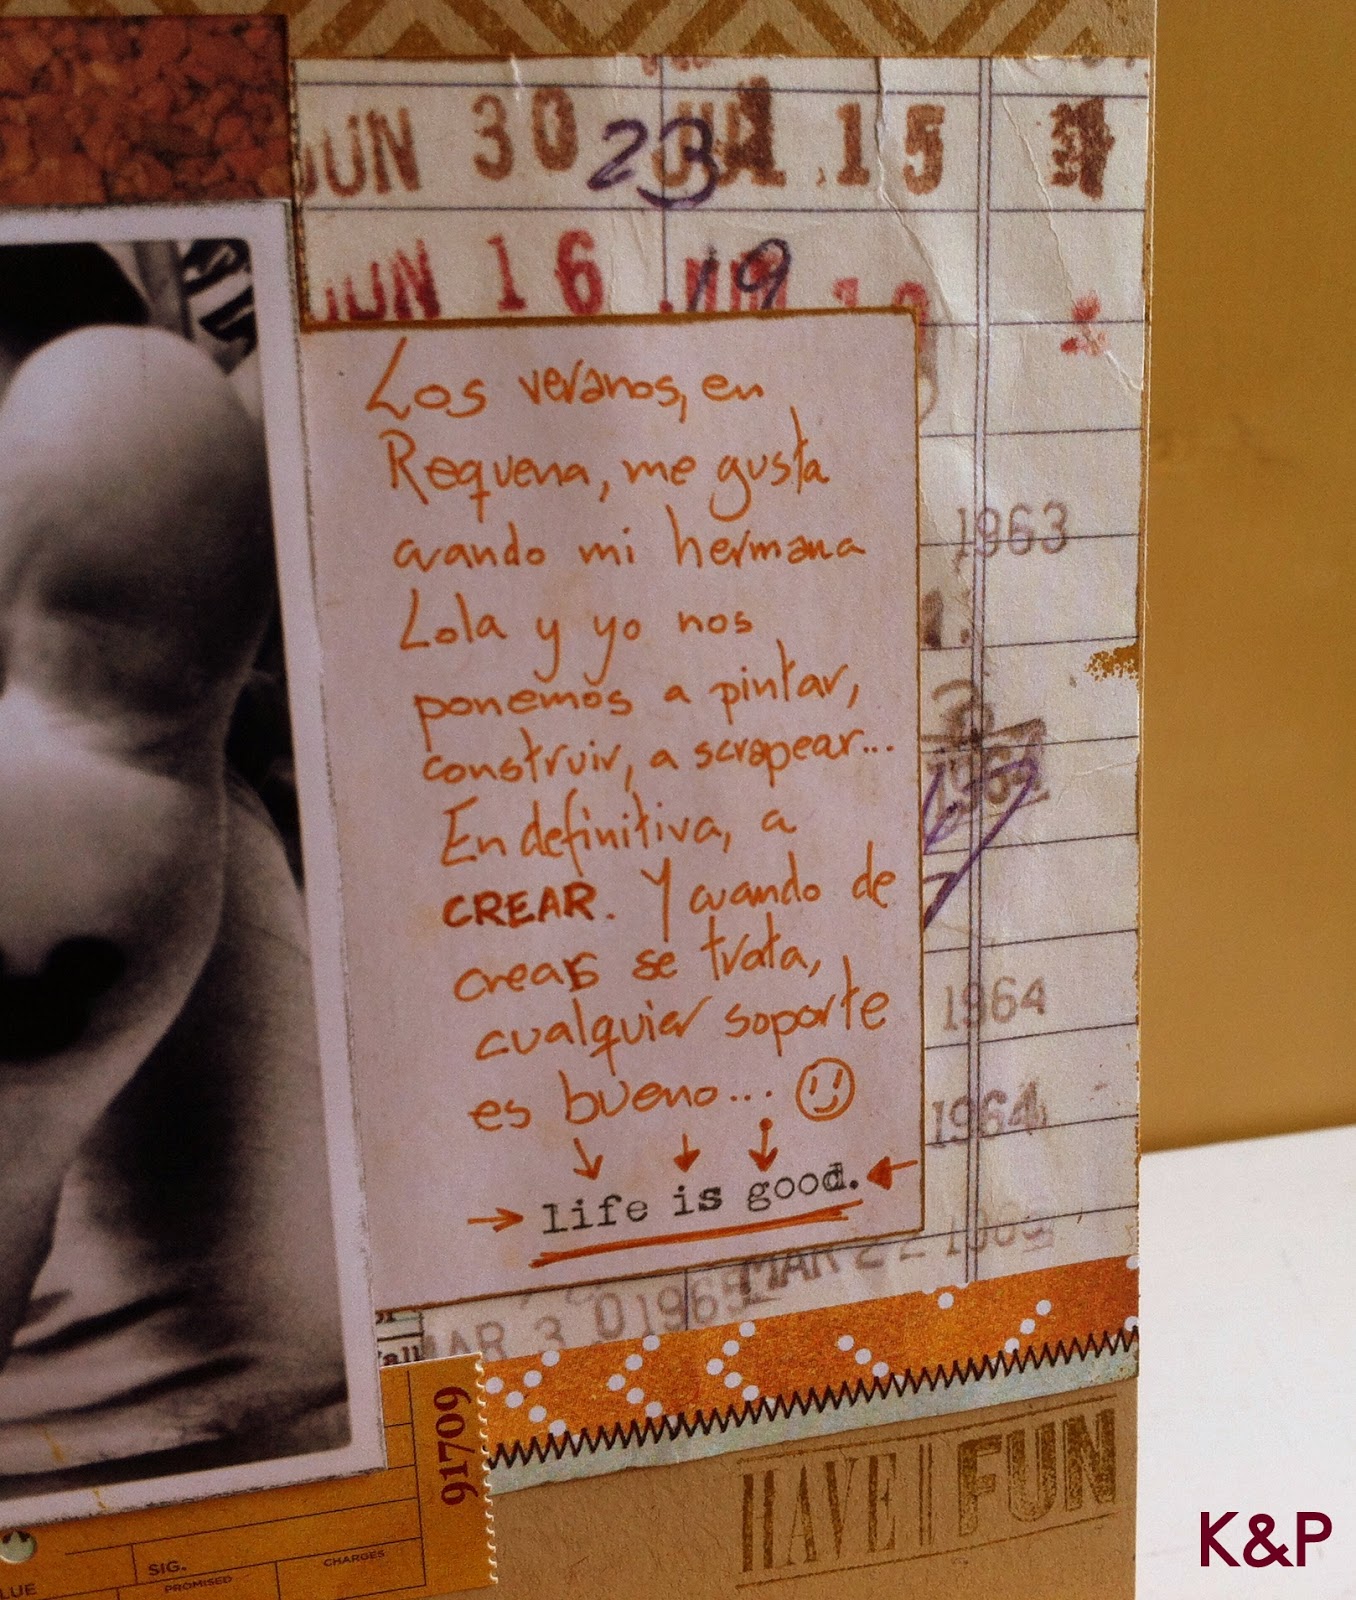 JUN 30 23 JUL 15
JUN 16 19
Los veranos, en
Requena, me gusta
cuando mi hermana
Lola y yo nos
ponemos a pintar,
construir, a scrapear...
En definitiva, a
CREAR. Y cuando de
crear se trata,
cualquier soporte
es bueno...
life is good.
1963
1964
1964
MAR 22
MAR 30 1965
91709
SIG.
PROMISED
CHARGES
HAVE FUN
K&P